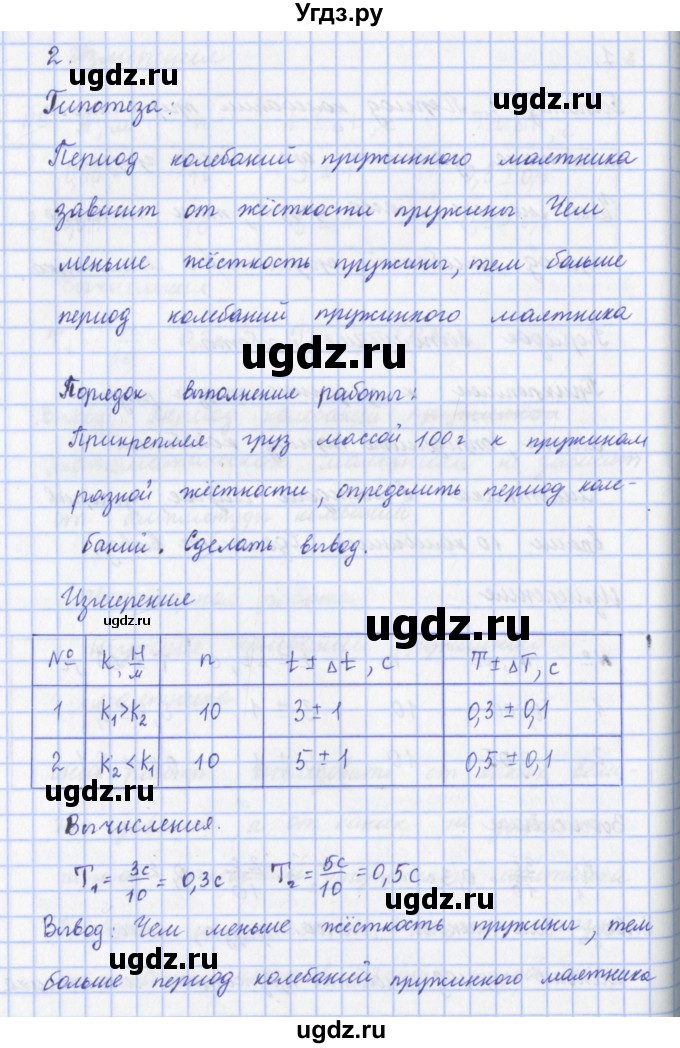 Угдз.ру
2.
ugdz.ru
ugdz.ru
Гипотеза.
Период колебаний пружинного маятника
зависит от жёсткости пружины Чем
меньше жёсткость пружины, тем больше
период колебаний пружинного маятника
ugdz.ru
Порядок выполнение работы:
Прикрепляя груз массой 100 г к пружинам
разной жёсткости, определить период коле-
баний. Сделать вывод.
ugdz.ru
Измерения
ugdz.ru
ugdz.ru
№ k, Н/м n t ± Δt, с T ± ΔT, с
1 k₁>k₂ 10 3 ± 1 0,3 ± 0,1
2 k₂<k₁ 10 5 ± 1 0,5 ± 0,1
ugdz.ru
Вычисления.
T₁ = 3с/10 = 0,3с T₂ = 5с/10 = 0,5с
ugdz.ru
Вывод: Чем меньше жёсткость пружины, тем
ugdz.ru
больше период колебаний пружинного маятника
ugdz.ru